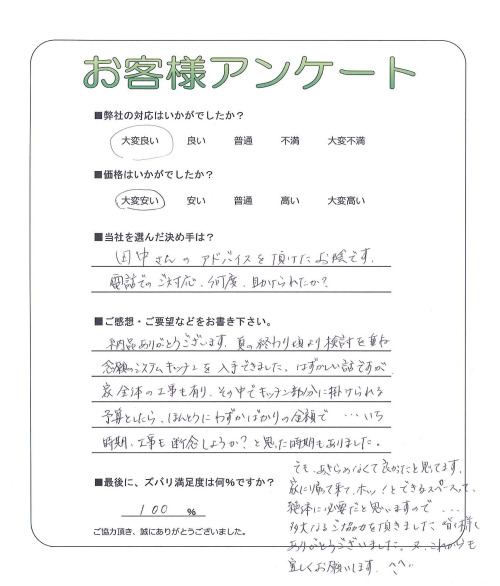 お客様アンケート
■弊社の対応はいかがでしたか?
大変良い 良い 普通 不満 大変不満
■価格はいかがでしたか?
大変安い 安い 普通 高い 大変高い
■当社を選んだ決め手は?
田中さんのアドバイスを頂けたお陰です。
電話でのご対応、何度、助けられたか?
■ご感想・ご要望などをお書き下さい。
納品ありがとうございます。夏の終わり頃より検討を重ね
念願のシステムキッチンを入手できました。はずかしい話ですが、
家全体の工事も有り、その中でキッチン部分に掛けられる
予算としたら、ほんとうにわずかばかりの金額で・・・いち
時期、工事も断念しようか?と思った時期もありました。
でも、あきらめなくて良かったと思ってます。
家に帰って来て、ホッ!とできるスペースって、
絶体に必要だと思いますので・・・
多大なるご協力を頂きました皆様
ありがとうございました。又、これからも
宜しくお願いします。^^
■最後に、ズバリ満足度は何%ですか?
100 %
ご協力頂き、誠にありがとうございました。